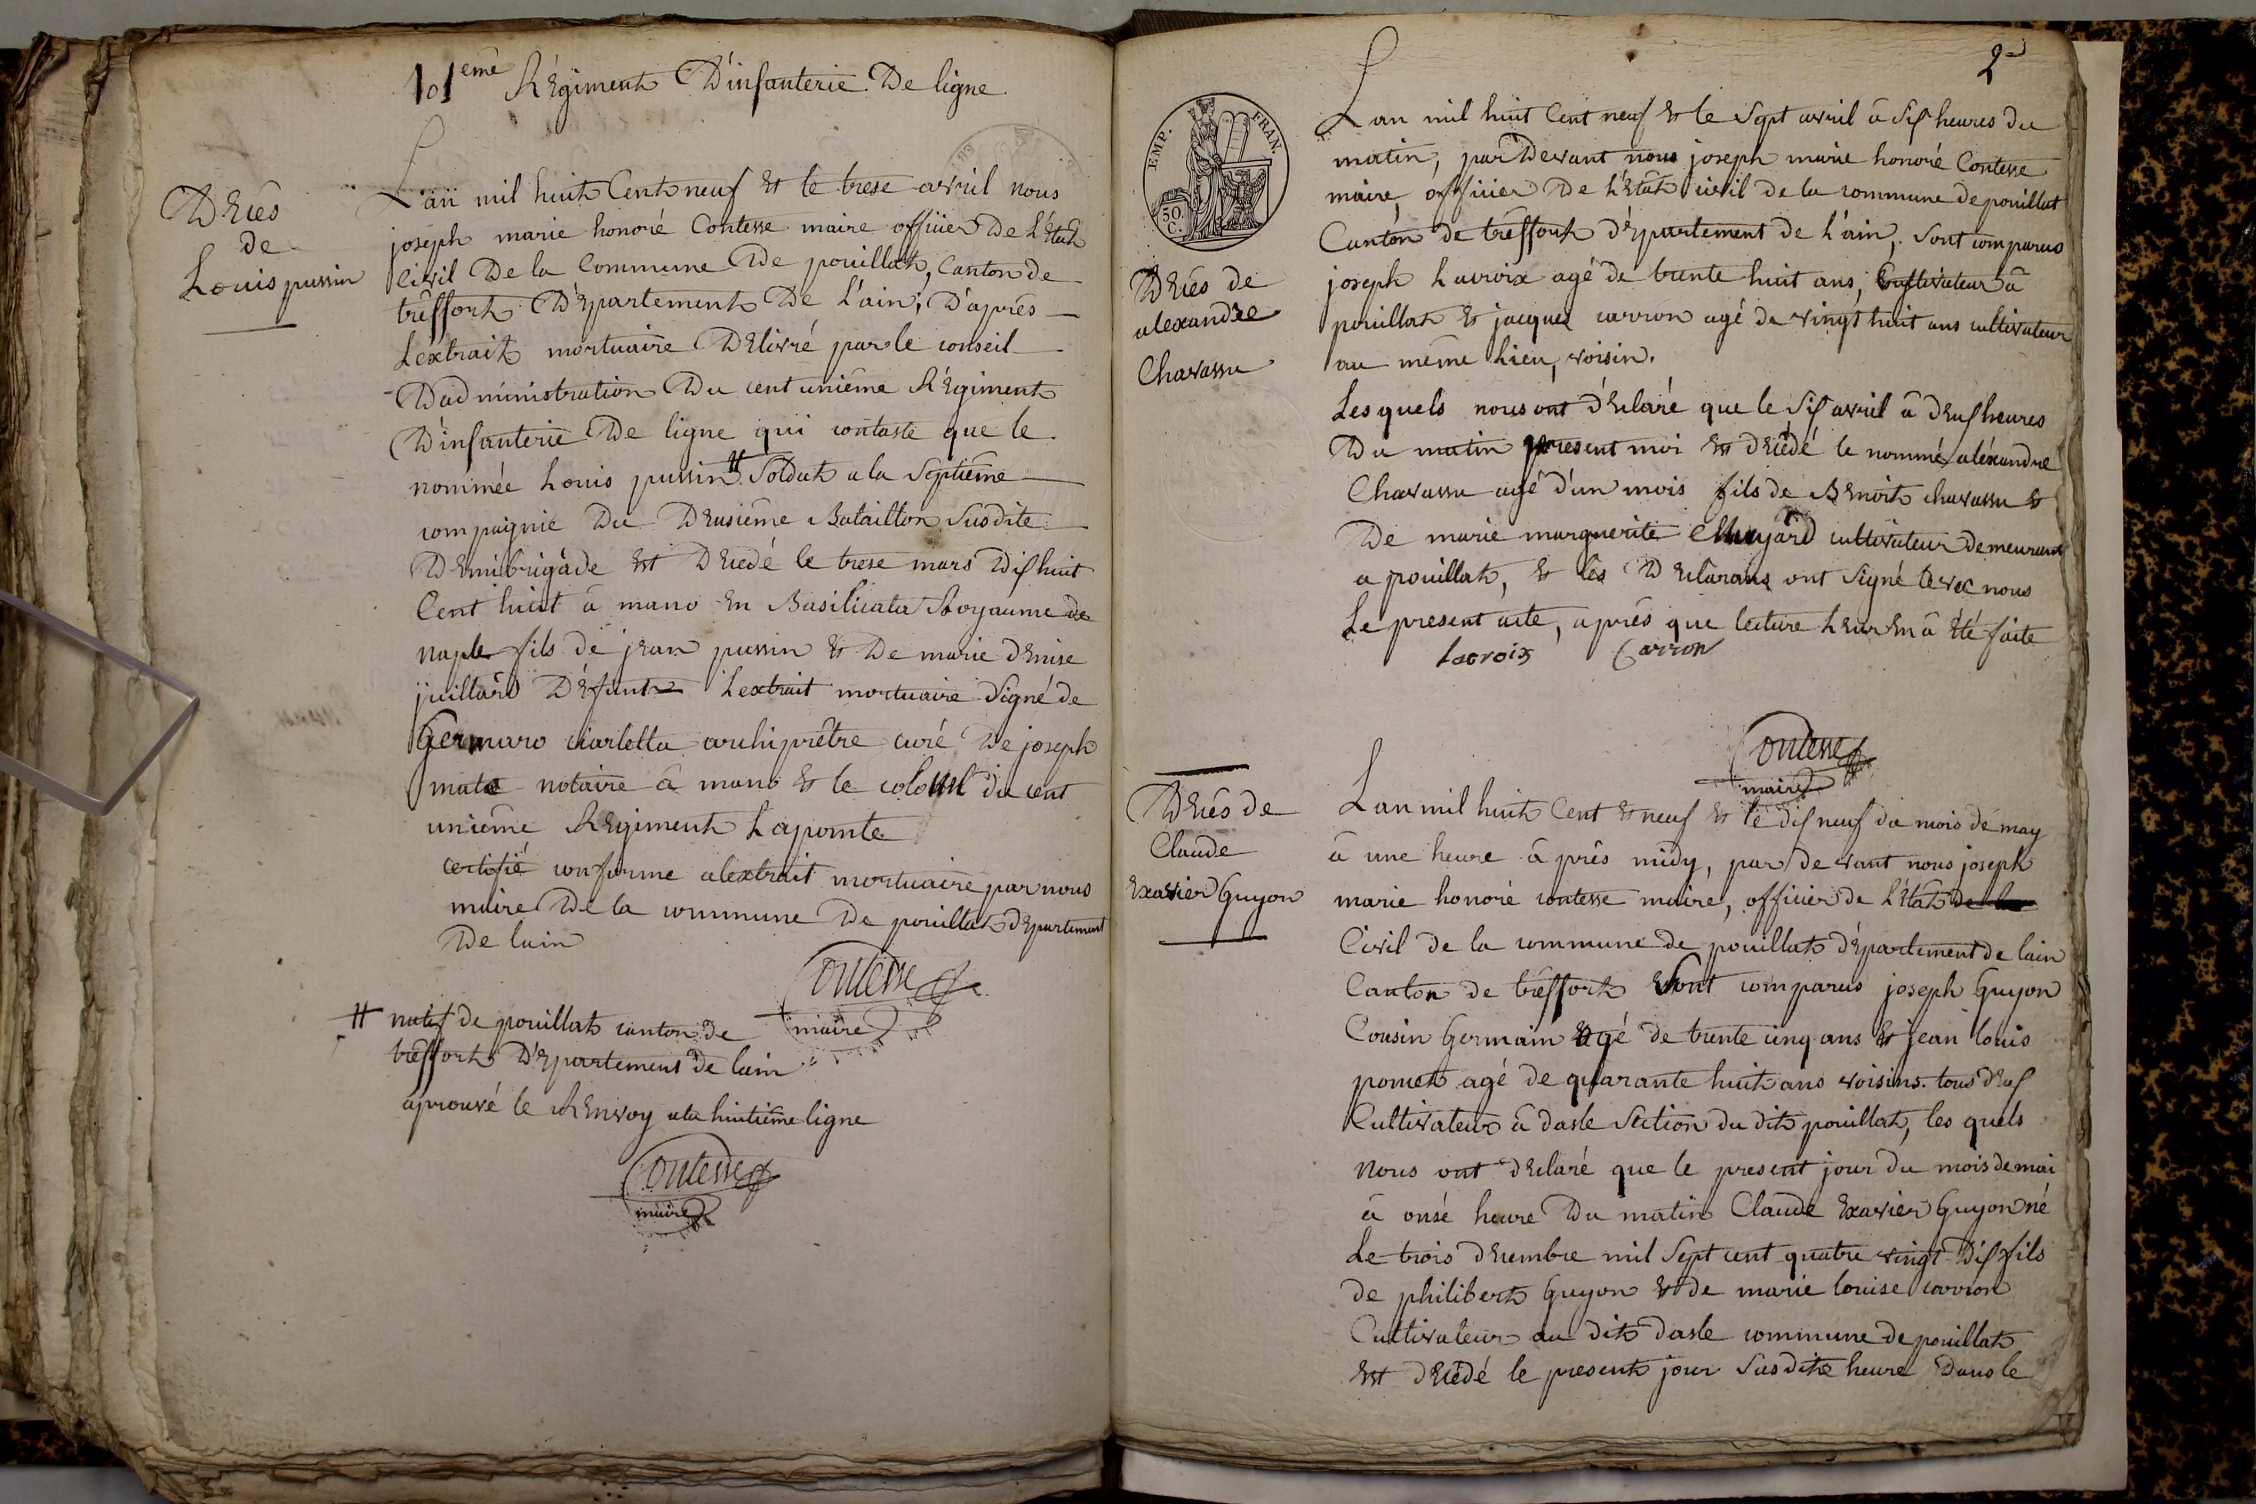 101ème Régiment D'infanterie De ligne
Décés
de
Louis pussin
L'an mil huit Cent neuf et le trese avril nous
joseph marie honoré Contesse maire officier De L'état
Civil De la Commune De pouillat, Canton de
tréffort Département De L'ain, D'aprés
L'extrait mortuaire Délivré par le conseil
D'administration Du cent uniéme Régiment
D'infanterie De ligne qui contaste que le
nommée Louis pussin # Soldat a la Septiéme
compagnie Du Deusiéme Bataillon Susdite
Demi brigade est Décedé le trese mars Dishuit
Cent huit à mano En Basilicata Royaume de
naple fils de jean pussin et De marie denise
juillard Défunt L'extrait mortuaire Signé de
Germaro ciarletta archiprêtre curé De joseph
mata notaire à mano et le colonel du cent
uniéme Régiment Lapointe
certifié conforme a lextrait mortuaire par nous
maire De la commune De pouillat département
De lain
Contesse
maire
# natif de pouillat canton de
tréffort Département de lain
aprouvé le Renvoy a la huitiéme ligne
Contesse
maire
2
EMP. FRAN.
50.
C.
Décés de
alexandre
Chavassu
L'an mil huit Cent neuf et le Sept avril à Sis heures du
matin, par Devant nous joseph marie honoré Contesse
maire, officier De L'état civil de la commune de pouillat
Canton de tréffort département de L'ain, Sont comparus
joseph Lacroix agé de trente huit ans, Cultivateur à
pouillat et jacques carron agé de vingt huit ans cultivateur
au même Lieu, voisin.
Les quels nous ont déclaré que le Sis avril à deus heures
Du matin present moi est décédé le nommé aléxandre
Chavassu agé d'un mois fils de Benoit chavassu et
De marie marguerite cultivateur demeurant
a pouillat, et les Déclarans ont signé avec nous
Le present acte, aprés que lecture Leur En à été faite
Lacroix Carron
Contesse
maire
Décés de
Claude
Exavier Guyon
L'an mil huit Cent et neuf et le dis neuf du mois de may
à une heure à prés midy, par de vant nous joseph
marie honoré contesse maire, officier de L'état de la
Civil de la commune de pouillat département de lain
Canton de tréffort Sont comparus joseph Guyon
Cousin Germain agé de trente cinq ans et jean louis
pomet agé de quarante huit ans voisins. tous deus
Cultivateur à dasle Section du dit pouillat, les quels
nous ont déclaré que le present jour du mois de mai
à onsé heure Du matin Claude Exavier Guyon né
Le trois décembre mil Sept cent quatre vingt Dis fils
de philibert Guyon et de marie louise carron
Cultivateur au dit dasle commune de pouillat
est décédé le present jour Susdite heure Dans le